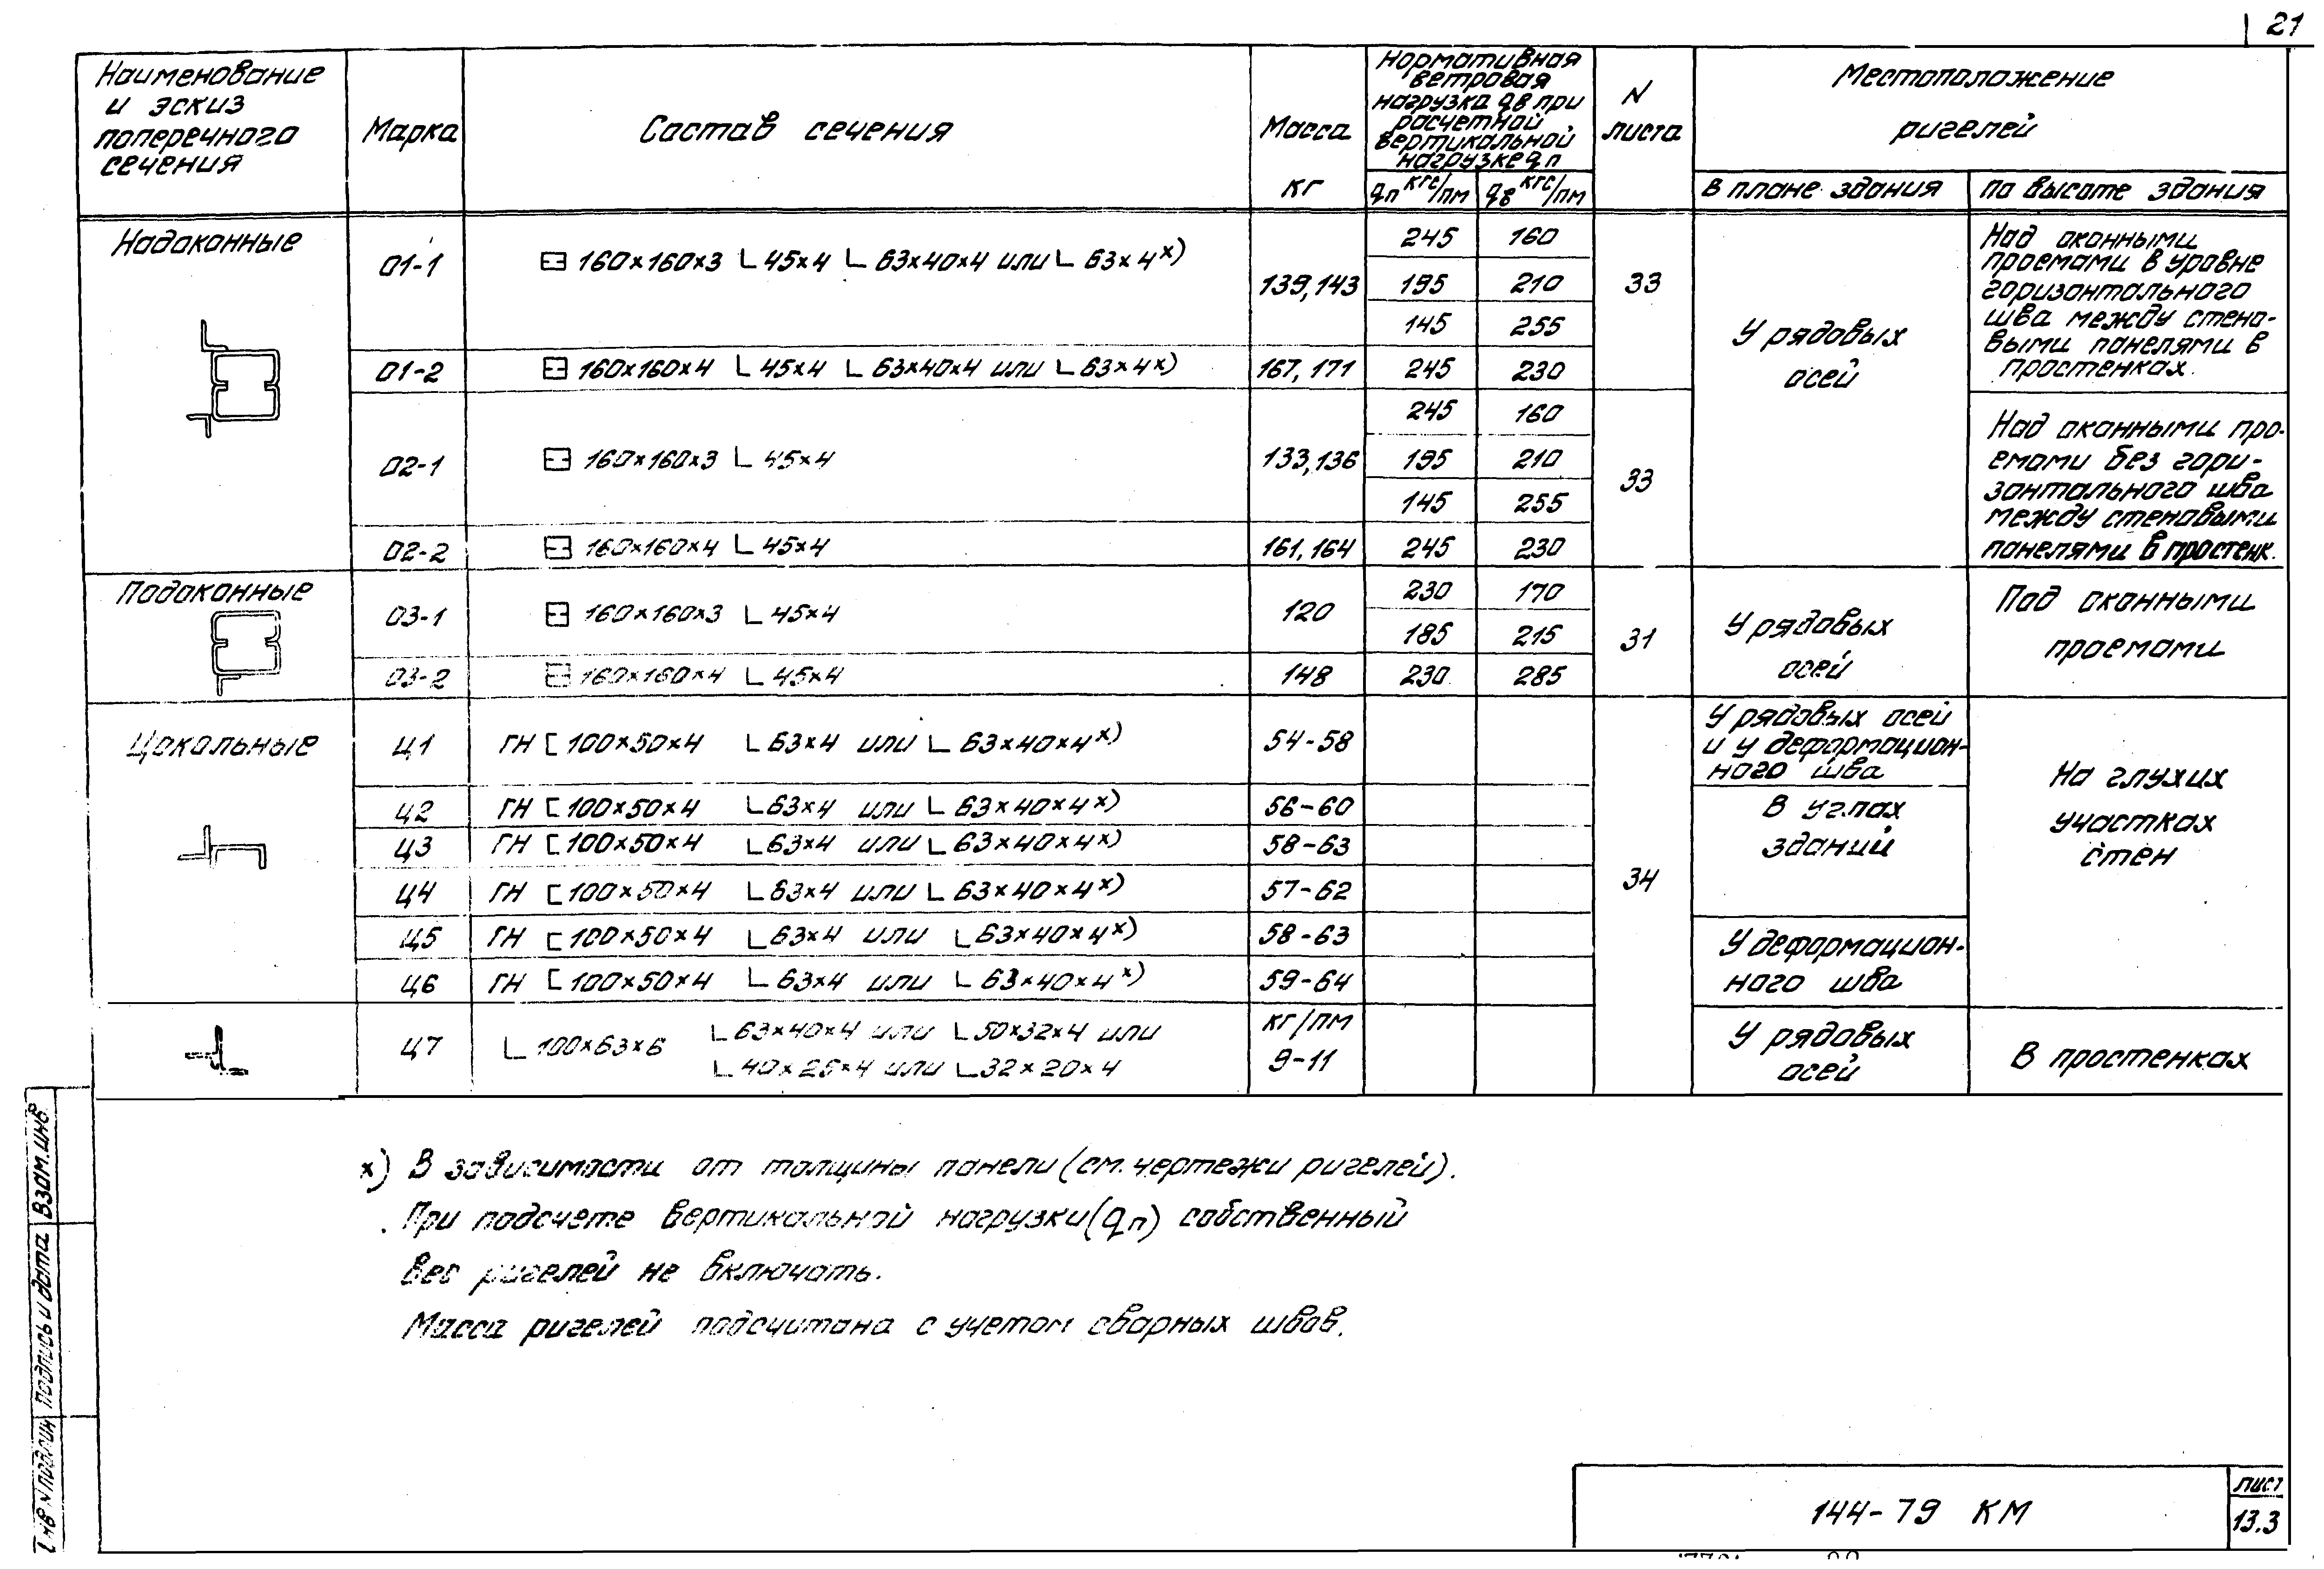 21
Наименование
и эскиз
поперечного
сечения
Марка
Состав сечения
Масса
кг
Нормативная
ветровая
нагрузка qв при
расчетной
вертикальной
нагрузке qп
qп кгс/пм
qв кгс/пм
N
листа
Местоположение
ригелей
в плане здания
по высоте здания
Надоконные
О1-1
160×160×3 L 45×4 L 63×40×4 или L 63×4 х)
139,143
245 160
195 210
145 255
33
У рядовых
осей
Над оконными
проемами в уровне
горизонтального
шва между стено-
выми панелями в
простенках.
О1-2
160×160×4 L 45×4 L 63×40×4 или L 63×4 х)
167, 171
245 230
О2-1
160×160×3 L 45×4
133,136
245 160
195 210
145 255
33
Над оконными про-
емами без гори-
зонтального шва
между стеновыми
панелями в простенк.
О2-2
160×160×4 L 45×4
161, 164
245 230
Подоконные
О3-1
160×160×3 L 45×4
120
230 170
185 215
31
У рядовых
осей
Под оконными
проемами
О3-2
160×160×4 L 45×4
148
230 285
Цокольные
Ц1 ГН [ 100×50×4 L 63×4 или L 63×40×4 х) 54-58
У рядовых осей
и у деформацион-
ного шва
На глухих
участках
стен
Ц2 ГН [ 100×50×4 L 63×4 или L 63×40×4 х) 56-60
В углах
зданий
Ц3 ГН [ 100×50×4 L 63×4 или L 63×40×4 х) 58-63
34
Ц4 ГН [ 100×50×4 L 63×4 или L 63×40×4 х) 57-62
Ц5 ГН [ 100×50×4 L 63×4 или L 63×40×4 х) 58-63
У деформацион-
ного шва
Ц6 ГН [ 100×50×4 L 63×4 или L 63×40×4 х) 59-64
Ц7
L 100×63×6
L 63×40×4 или L 50×32×4 или
L 40×25×4 или L 32×20×4
кг/пм
9-11
У рядовых
осей
В простенках
х) В зависимости от толщины панели (см. чертежи ригелей).
При подсчете вертикальной нагрузки (qп) собственный
вес ригелей не включать.
Масса ригелей подсчитана с учетом сварных швов.
Взам.инв
Подпись и дата
Инв N подлин
144-79 КМ
лист
13.3